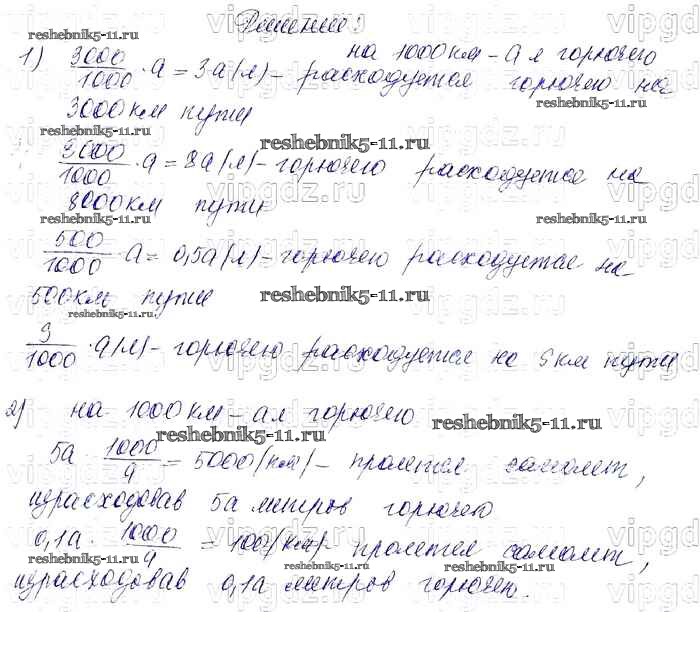 Решение:
на 1000км – а л горючего
1) 3000/1000 · а = 3а (л) – расходуется горючего на
3000км пути
reshebnik5-11.ru
8000/1000 · а = 8а (л) – горючего расходуется на
8000км пути
500/1000 · а = 0,5а (л) – горючего расходуется на
500км пути
reshebnik5-11.ru
S/1000 · а (л) – горючего расходуется на S км пути
2) на 1000км – а л горючего
reshebnik5-11.ru
5а · 1000/а = 5000 (км) – пролетел самолет,
израсходовав 5а литров горючего
0,1а · 1000/а = 100 (км) – пролетел самолет,
израсходовав 0,1а литров горючего.
vipgdz.ru